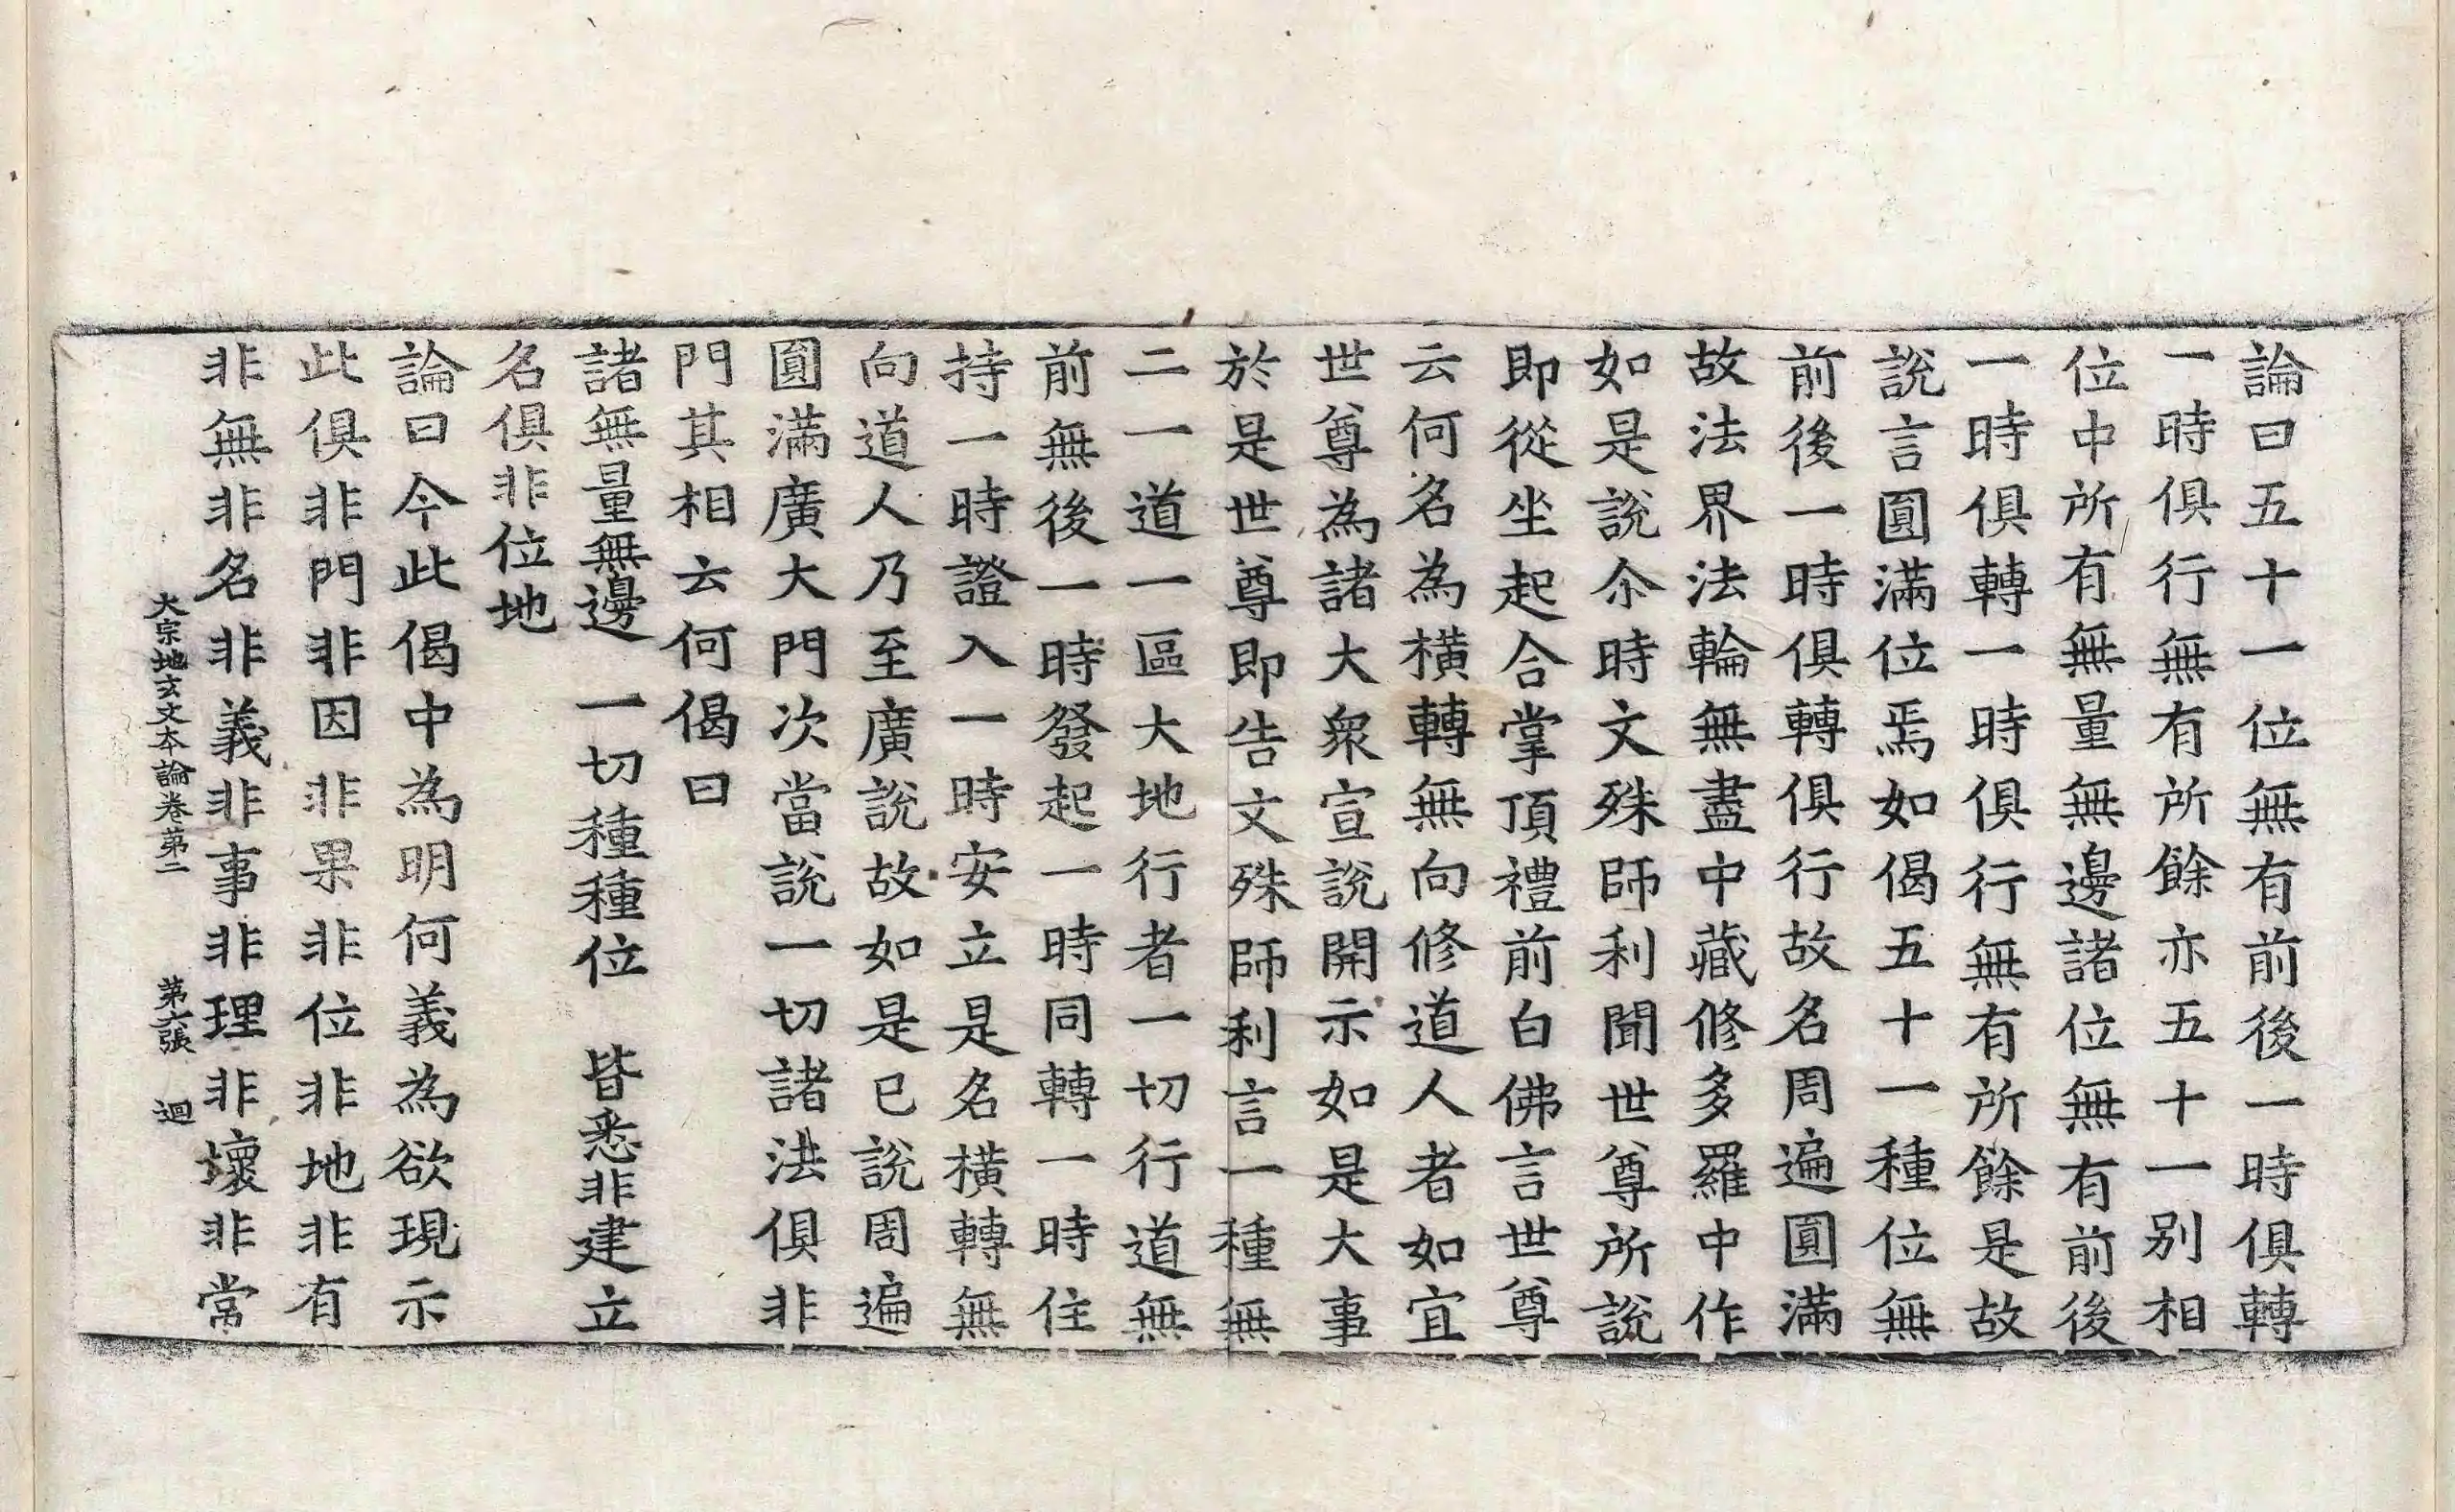 論曰五十一位無有前後一時俱轉
一時俱行無有所餘亦五十一別相
位中所有無量無邊諸位無有前後
一時俱轉一時俱行無有所餘是故
說言圓滿位焉如偈五十一種位無
前後一時俱轉俱行故名周遍圓滿
故法界法輪無盡中藏修多羅中作
如是說尒時文殊師利聞世尊所說
即從坐起合掌頂禮前白佛言世尊
云何名為橫轉無向修道人者如宜
世尊為諸大衆宣說開示如是大事
於是世尊即告文殊師利言一種無
二一道一區大地行者一切行道無
前無後一時發起一時同轉一時住
持一時證入一時安立是名橫轉無
向道人乃至廣說故如是已說周遍
圓滿廣大門次當說一切諸法俱非
門其相云何偈曰
諸無量無邊　一切種種位　皆悉非建立
名俱非位地
論曰今此偈中為明何義為欲現示
此俱非門非因非果非位非地非有
非無非名非義非事非理非壞非常
大宗地玄文本論卷第二　第六張　迴